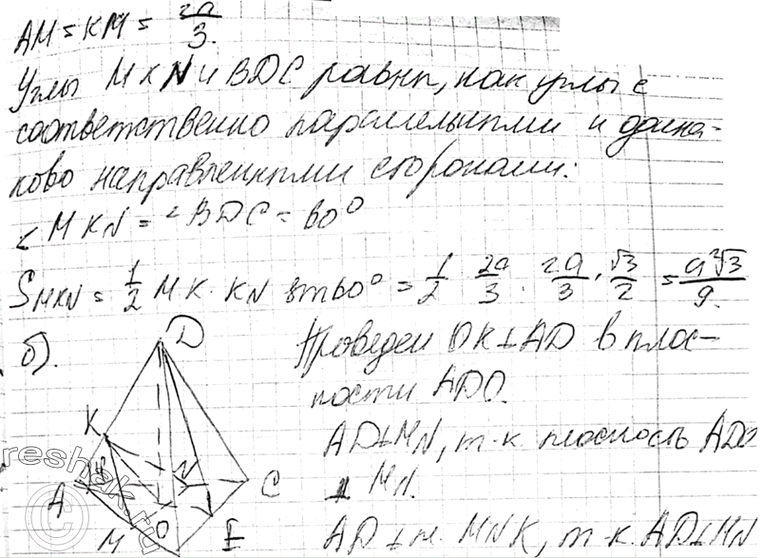 AM = KM = 2a/3.
Углы MKN и BDC равны, как углы с
соответственно параллельными и одина-
ково направленными сторонами:
∠MKN = ∠BDC = 60°
S_MKN = 1/2 MK · KN sin60° = 1/2 · 2a/3 · 2a/3 · √3/2 = a²√3/9.
б).
D
K
A
M
O
N
C
E
Проведем OK⊥AD в плос-
кости ADO.
AD⊥MN, т.к. плоскость ADO
⊥ MN.
AD ⊥ п. MNK, т.к. AD⊥MN
reshak.ru